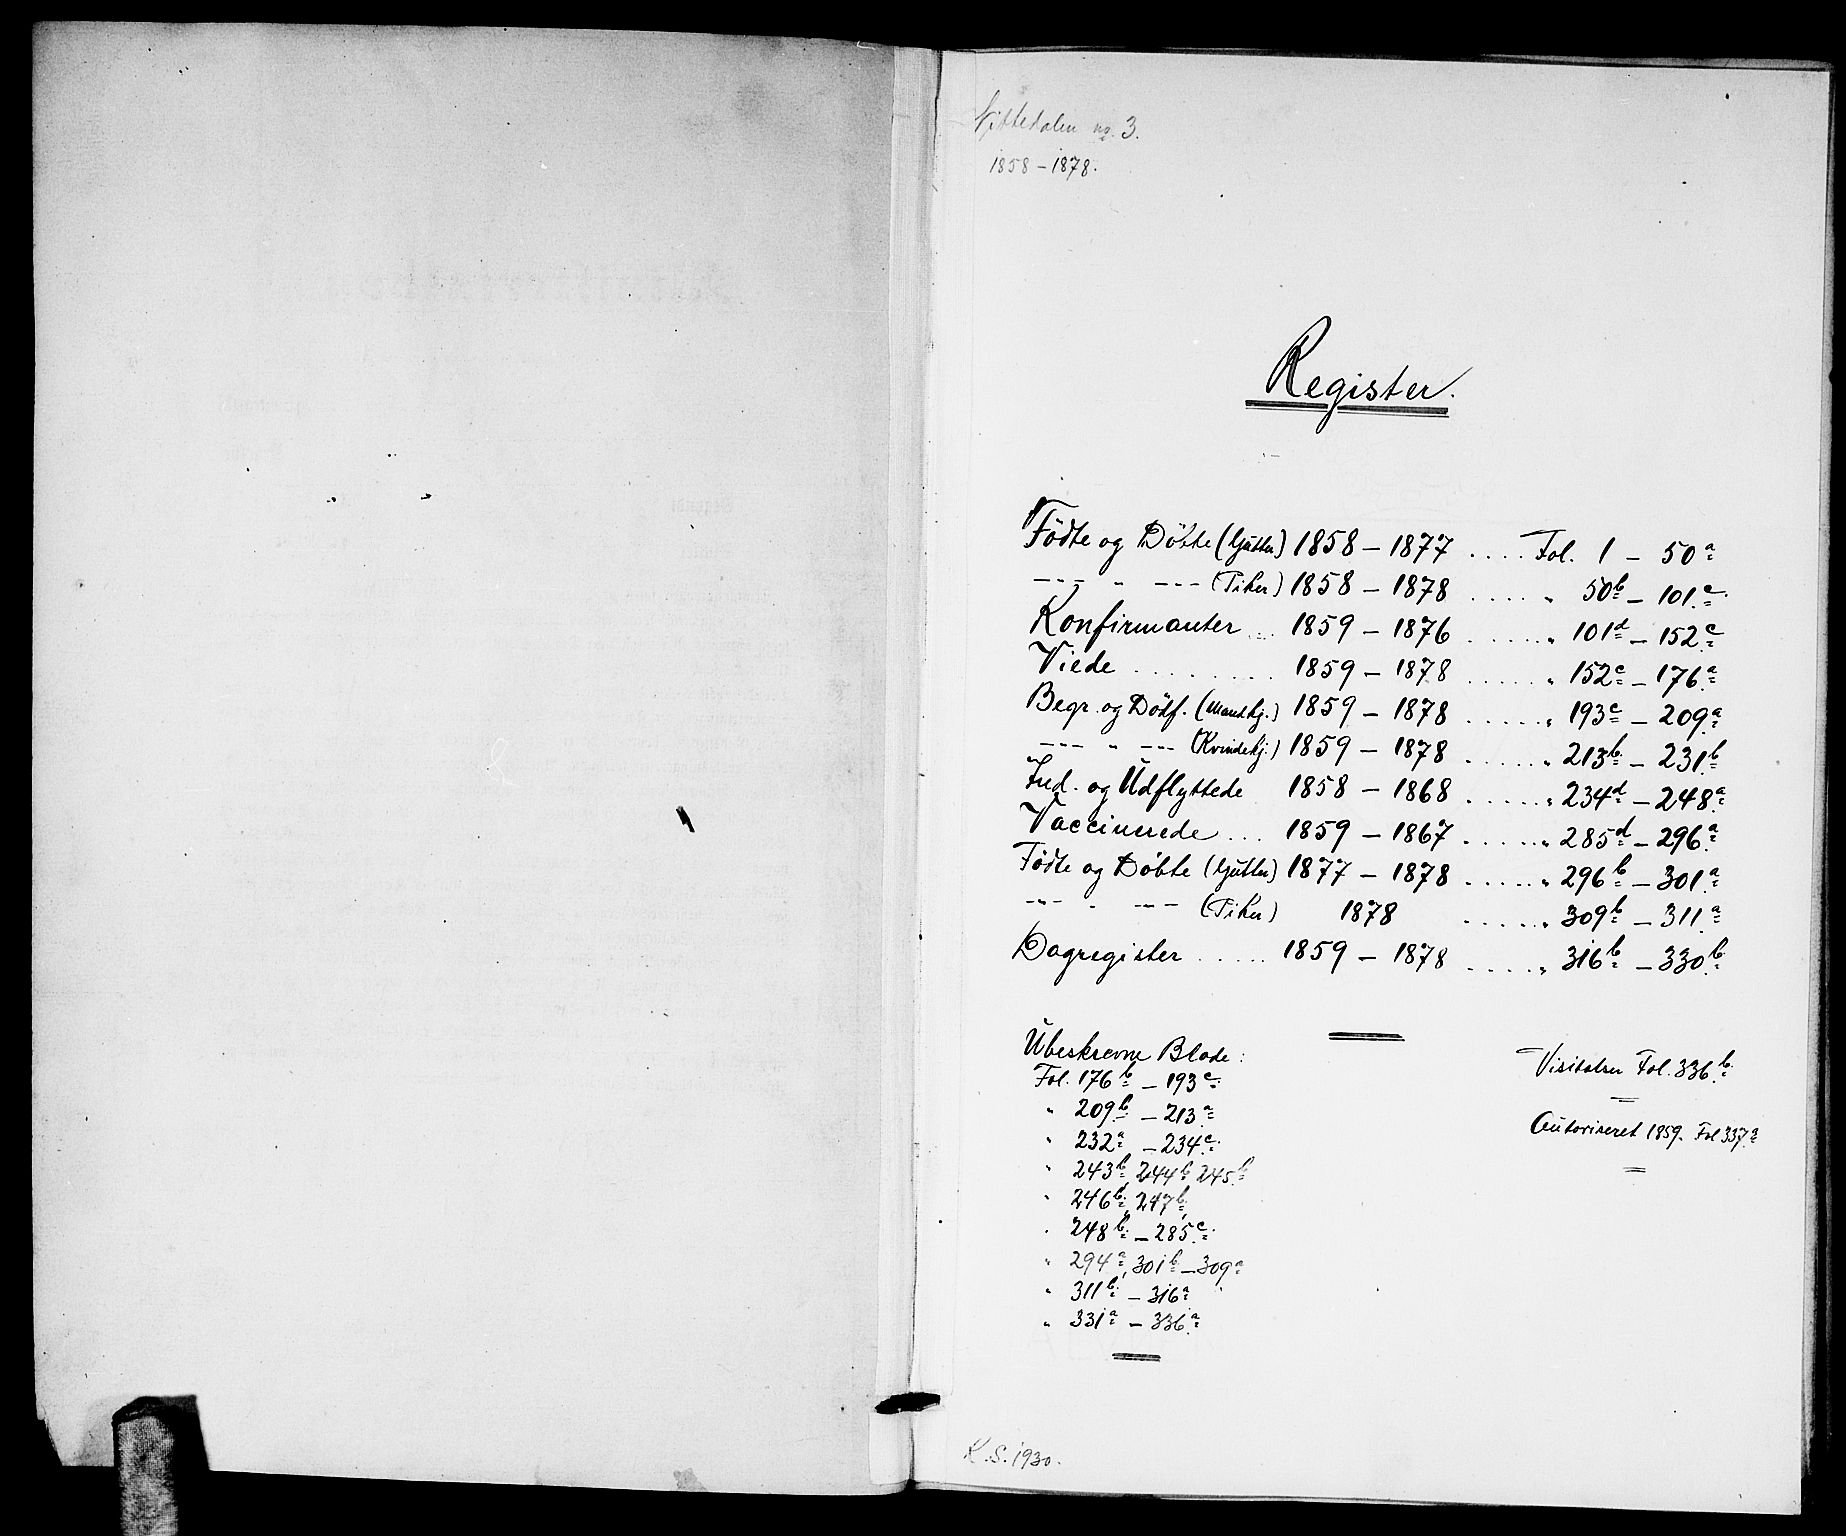 Nittedalen no. 3.
1858 – 1878.
Register.
Födte og Döbte (Gutter) 1858 – 1877 .... Fol. 1 – 50 a
--- " --- (Piker) 1858 – 1878 ..... " 50 b – 101 c.
Konfirmanter ... 1859 – 1876 ...... " 101 d – 152 c
Viede ........ 1859 – 1878 ...... " 152 c – 176 a
Begr. og Dödf. (Mandkj.) 1859 – 1878 ...... " 193 c – 209 a
--- " --- (Kvindekj.) 1859 – 1878 ...... " 213 b – 231 b
Ind. og Udflyttede 1858 – 1868 ...... " 234 d – 248 a
Vaccinerede ... 1859 – 1867 ...... " 285 d – 296 a
Födte og Döbte (Gutter) 1877 – 1878 ...... " 296 b – 301 a
--- " --- (Piker) 1878 ...... " 309 b – 311 a
Dagregister ..... 1859 – 1878 ..... " 316 b – 330 b
Ubeskrevne Blade:
Fol. 176 b – 193 c
" 209 b – 213 a
" 232 a – 234 c
" 243 b, 244 b, 245 b
" 246 b, 247 b,
" 248 b – 285 c
" 294 a, 301 b – 309 a
" 311 b – 316 a
" 331 a – 336 a
Visitatser Fol. 336 b
Autoriseret 1859. Fol 337 a
K.S. 1930.